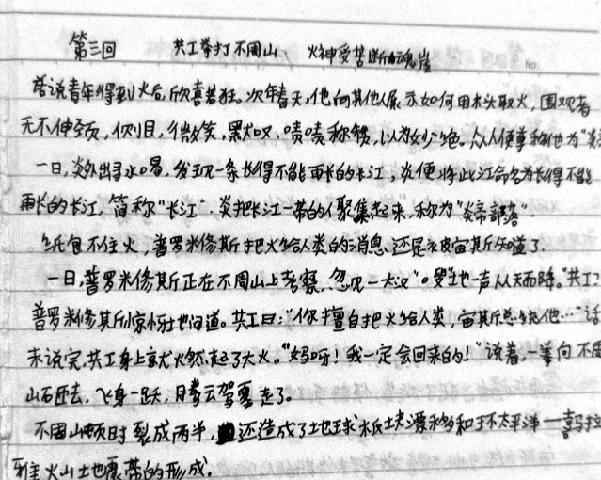 第三回 共工拳打不周山 火神受苦断魂崖
话说青年得到火后,欣喜若狂。次年春天,他向其他人展示如何用木头取火,围观者
无不伸颈,侧目,微笑,默叹,啧啧称赞,以为妙绝。众人便尊称他为“炎
一日,炎外出寻水喝,发现一条长得不能再长的长江,炎便将此江命名为长得不能
再长的长江,简称“长江”.炎把长江一带的人聚集起来,称为“炎帝部落”
纸包不住火,普罗米修斯把火给人类的消息还是被宙斯知道了.
一日,普罗米修斯正在不周山上考察,忽见一大汉“嗖”地一声从天而降。“共工?
普罗米修斯惊讶地问道。共工曰:“你擅自把火给人类,宙斯总统他…”话
未说完,共工身上就燃起了大火。“妈呀!我一定会回来的!”说着,一拳向不周
山砸去,飞身一跃,腾云驾雾走了。
不周山顿时裂成两半,还造成了地球板块漂移和环太平洋—喜马拉
雅火山地震带的形成.